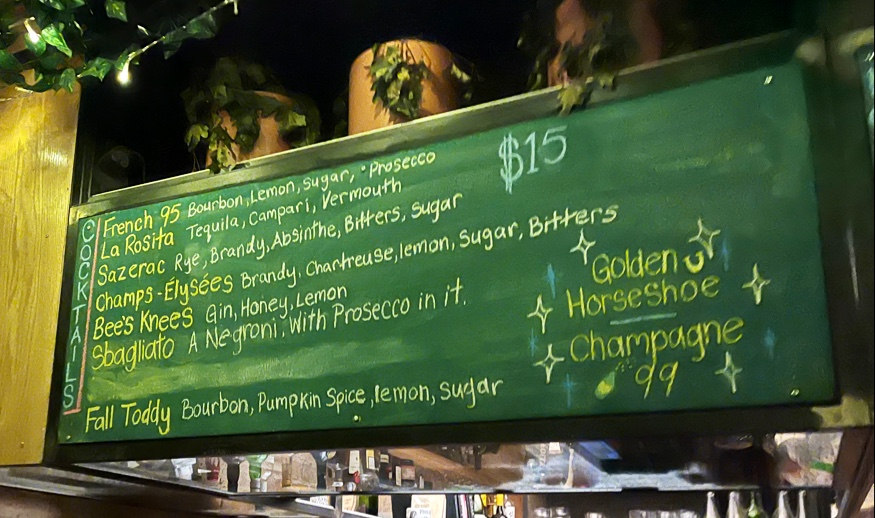 COCKTAILS
$15
French 95 Bourbon, Lemon, Sugar, Prosecco
La Rosita Tequila, Campari, Vermouth
Sazerac Rye, Brandy, Absinthe, Bitters, Sugar
Champs-Élysées Brandy, Chartreuse, lemon, Sugar, Bitters
Bee's Knees Gin, Honey, Lemon
Sbagliato A Negroni. With Prosecco in it.
Fall Toddy Bourbon, Pumpkin Spice, lemon, Sugar
Golden
Horseshoe
Champagne
99